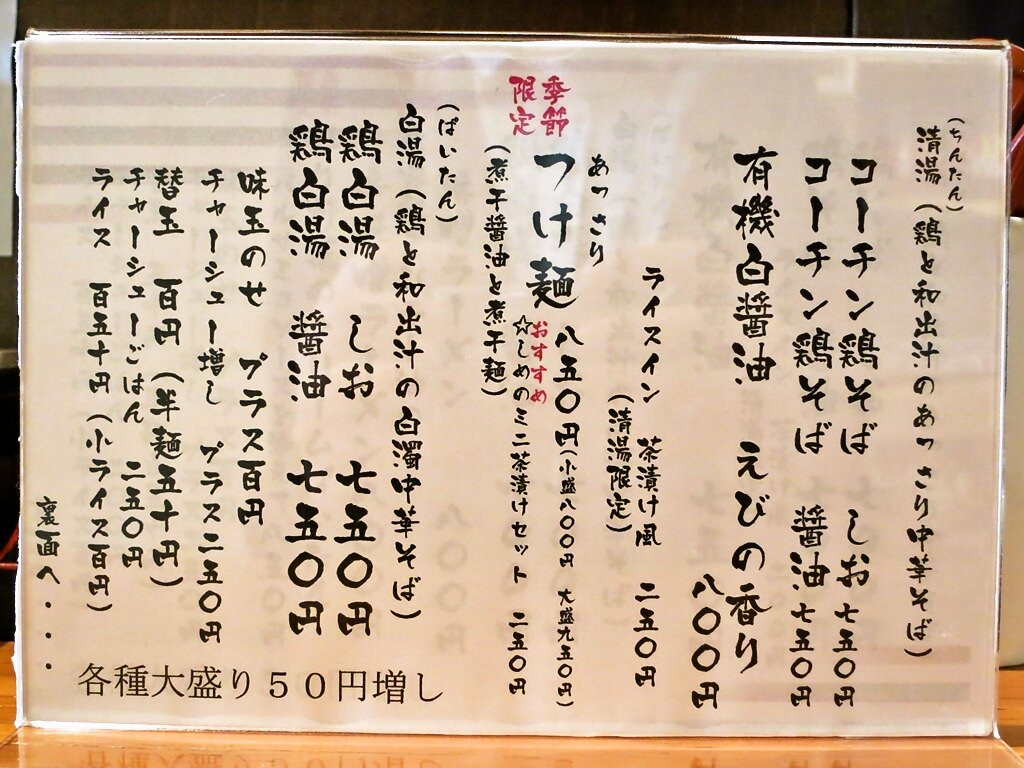 (ちんたん)
清湯(鶏と和出汁のあっさり中華そば)
コーチン鶏そば しお 七五〇円
コーチン鶏そば 醤油 七五〇円
有機白醤油 えびの香り
八〇〇円
ライスイン 茶漬け風 二五〇円
(清湯限定)
季節
限定
あっさり
つけ麺 八五〇円(小盛八〇〇円 大盛九五〇円)
おすすめ
☆しめのミニ茶漬けセット 二五〇円
(煮干醤油と煮干麺)
(ぱいたん)
白湯(鶏と和出汁の白濁中華そば)
鶏白湯 しお 七五〇円
鶏白湯 醤油 七五〇円
味玉のせ プラス百円
チャーシュー増し プラス二五〇円
替玉 百円(半麺五十円)
チャーシューごはん 二五〇円
ライス 百五十円(小ライス百円)
裏面へ・・・
各種大盛り50円増し